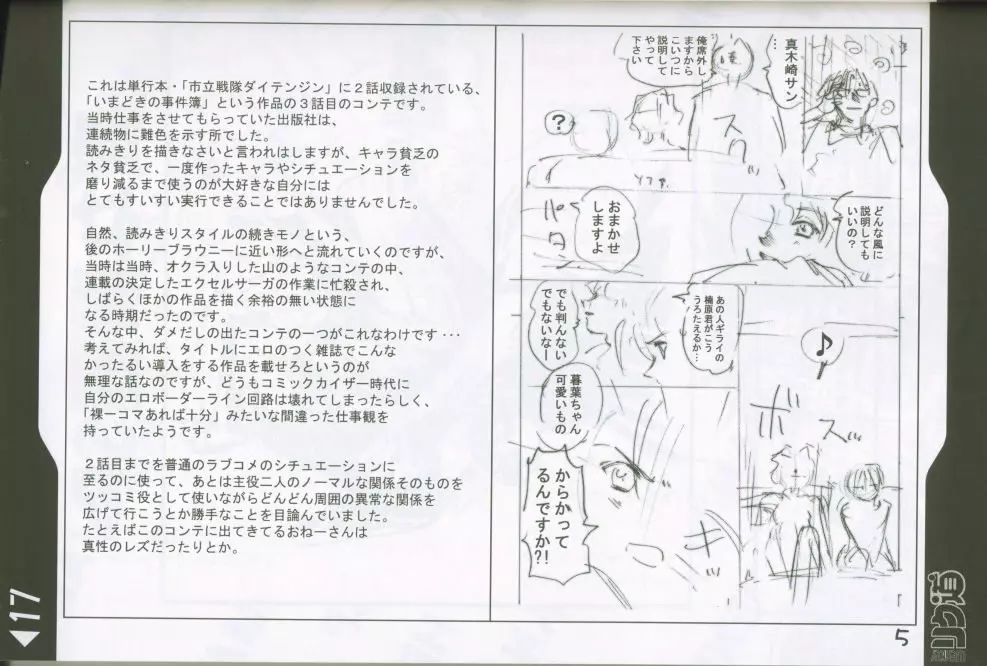 これは単行本・「市立戦隊ダイテンジン」に２話収録されている、
「いまどきの事件簿」という作品の３話目のコンテです。
当時仕事をさせてもらっていた出版社は、
連続物に難色を示す所でした。
読みきりを描きなさいと言われはしますが、キャラ貧乏の
ネタ貧乏で、一度作ったキャラやシチュエーションを
磨り減るまで使うのが大好きな自分には
とてもすいすい実行できることではありませんでした。
自然、読みきりスタイルの続きモノという、
後のホーリーブラウニーに近い形へと流れていくのですが、
当時は当時、オクラ入りした山のようなコンテの中、
連載の決定したエクセルサーガの作業に忙殺され、
しばらくほかの作品を描く余裕の無い状態に
なる時期だったのです。
そんな中、ダメだしの出たコンテの一つがこれなわけです･･･
考えてみれば、タイトルにエロのつく雑誌でこんな
かったるい導入をする作品を載せろというのが
無理な話なのですが、どうもコミックカイザー時代に
自分のエロボーダーライン回路は壊れてしまったらしく、
「裸一コマあれば十分」みたいな間違った仕事観を
持っていたようです。
２話目までを普通のラブコメのシチュエーションに
至るのに使って、あとは主役二人のノーマルな関係そのものを
ツッコミ役として使いながらどんどん周囲の異常な関係を
広げて行こうとか勝手なことを目論んでいました。
たとえばこのコンテに出てきてるおねーさんは
真性のレズだったりとか。
真木崎サン
…
俺席外し
ますから
こいつに
説明して
やって
下さい
スッ
?
ソファ
どんな風に
説明しても
いいの？
おまかせ
しますよ
パタン
あの人ギライの
楠原君がこう
うろたえるか…
でも判んない
でもないなー
♪
ボスッ
暮葉ちゃん
可愛いもの
からかって
るんですか?!
キッ
5
17